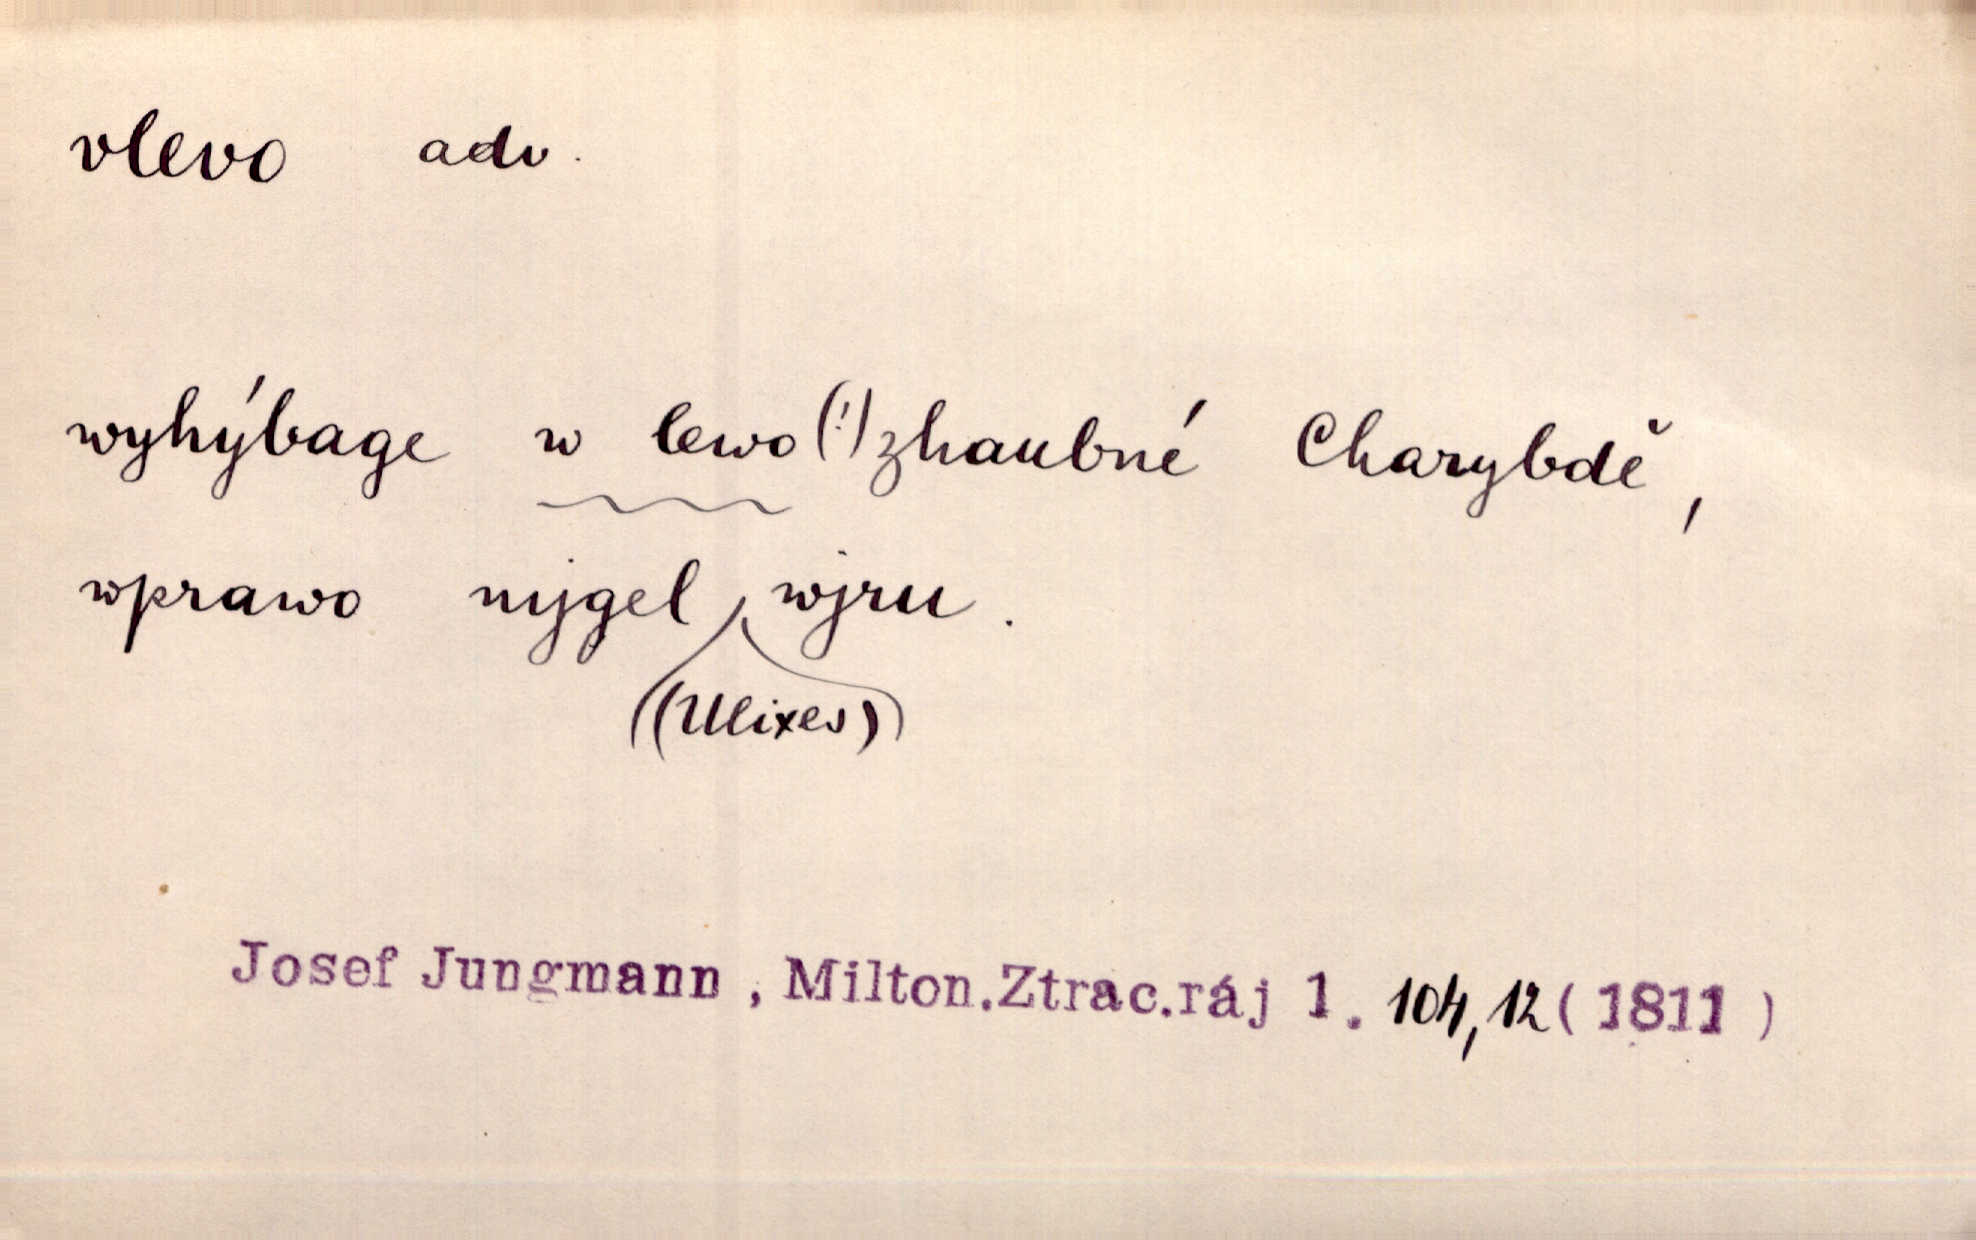 vlevo adv.
wyhýbage w lewo (!) zhaubné Charybdě,
wprawo mjgel wjru.
((Ulixes))
Josef Jungmann, Milton.Ztrac.ráj 1. 104,12 (1811)